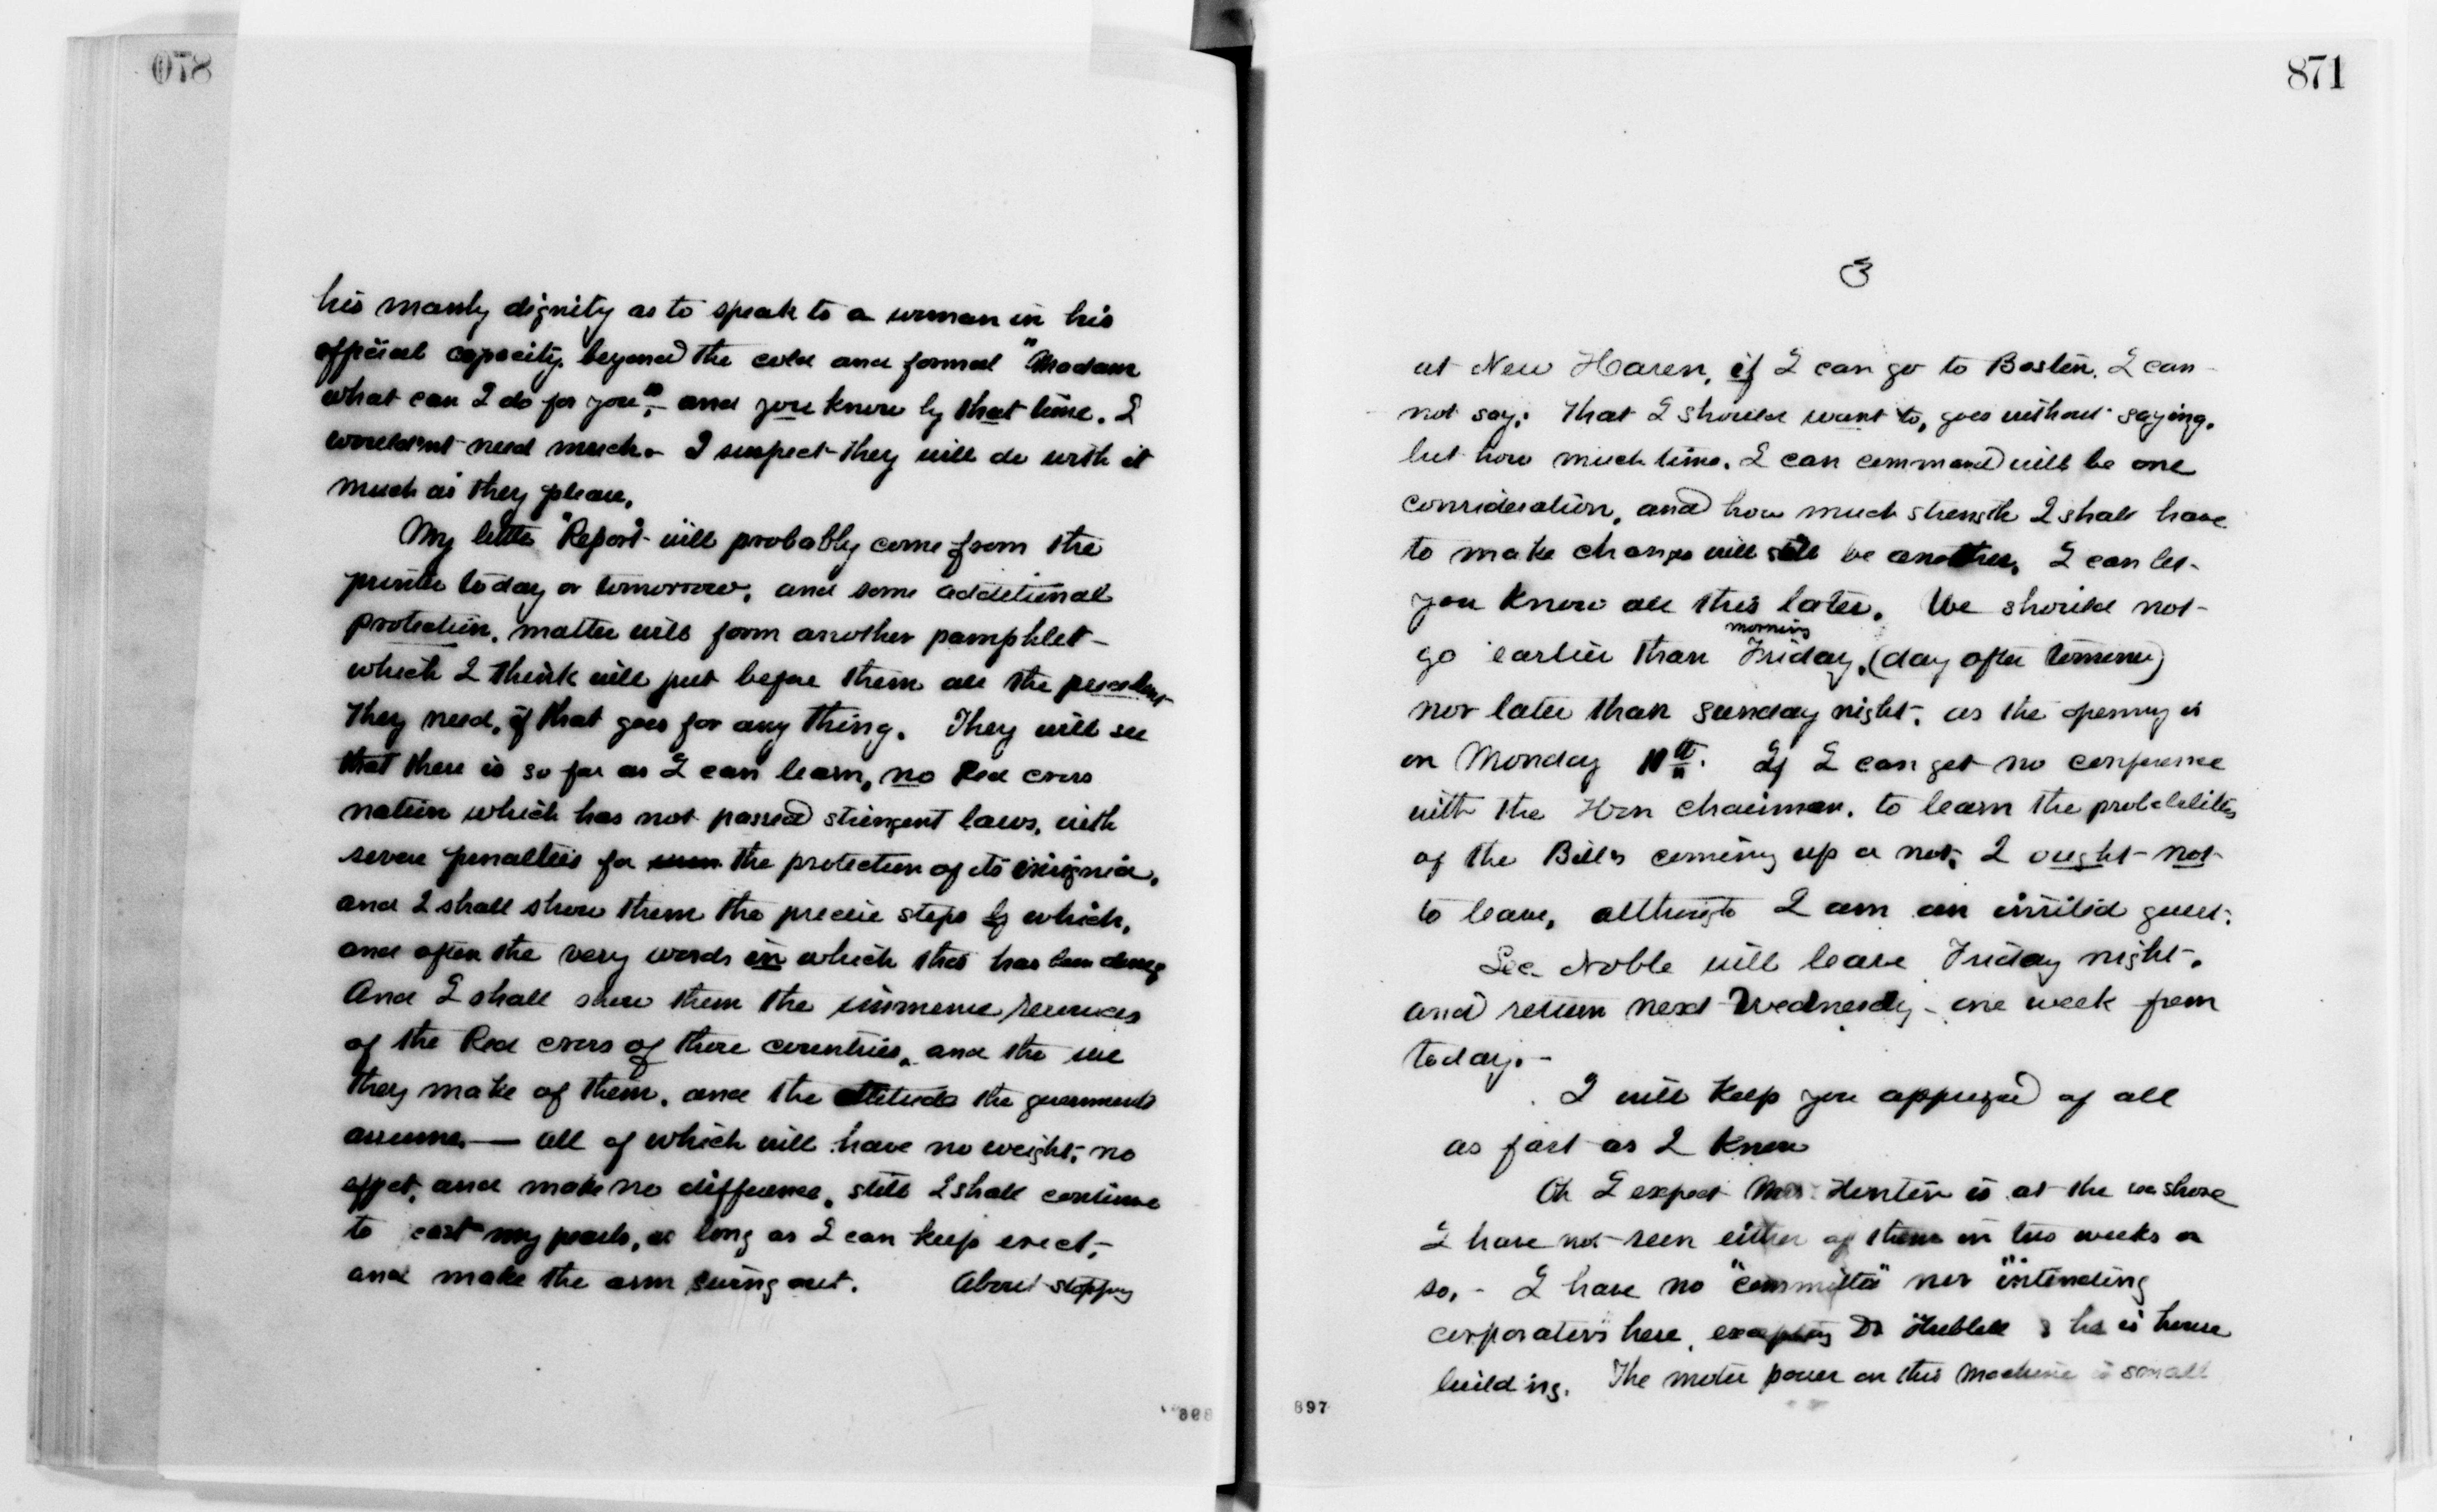 078
his manly dignity as to speak to a woman in his
official capacity beyond the cold and formal "Madam
what can I do for you", - and you know by that time. I
would'nt need much - I suspect they will do with it
much as they please,
My little "Report" will probably come from the
printer today or tomorrow, and some additional
protection, matter will form another pamphlet -
which I think will put before them all the precedent
they need, if that goes for any thing. They will see
that there is so far as I can learn, no Red cross
nation which has not passed stringent laws, with
severe penalties for the protection of its insignia,
and I shall show them the precise steps by which,
and often the very words in which this has been done,
And I shall show them the immense resources
of the Red cross of these countries, and the use
they make of them, and the attitude the governments
assume. — all of which will have no weight, no
effect, and make no difference, still I shall continue
to cast my pearls, as long as I can keep erect, -
and make the arm swing out. About stopping
898
871
3
at New Haven, if I can go to Boston, I can -
not say. That I should want to, goes without saying,
but how much time. I can command will be one
consideration, and how much strength I shall have
to make change will still be another, I can let
you know all this later. We should not -
morning
go earlier than Friday, (day after tomorrow)
nor later than Sunday night, as the opening is
on Monday 11th. If I can get no conference
with the Hon chairman, to learn the probabilities
of the Bills coming up or not, I ought - not
to leave, although I am an invited guest.
Sec. Noble will leave Friday night,
and return next Wednesdy - one week from
today. -
I will keep you apprized of all
as fast as I know
Oh I expect Mrs Hinton is at the sea shore
I have not seen either of them in two weeks or
so, - I have no "committee" nor "intending
corporators" here, excepting Dr Hubbell & he is house
building. The motor power on this machine is small
897